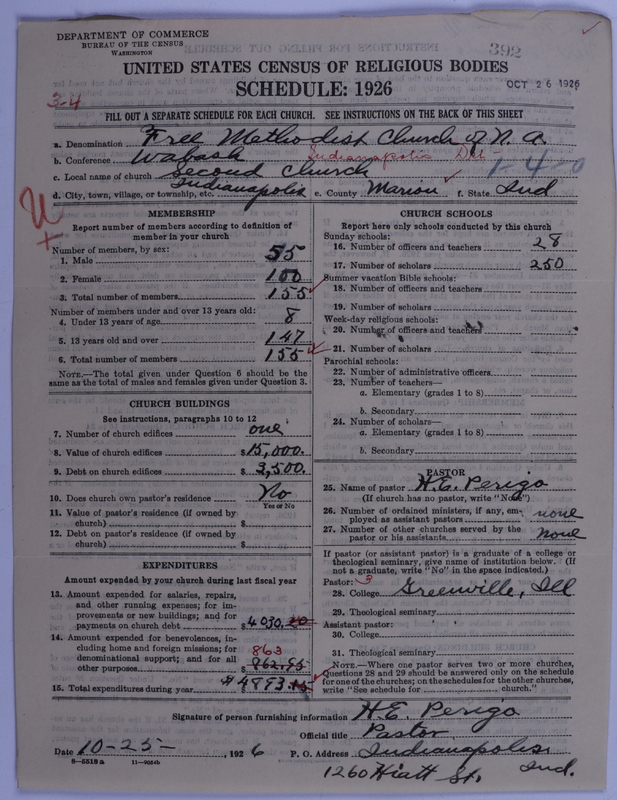 DEPARTMENT OF COMMERCE
BUREAU OF THE CENSUS
WASHINGTON
392
UNITED STATES CENSUS OF RELIGIOUS BODIES
SCHEDULE: 1926
OCT 26 1926
3-4
FILL OUT A SEPARATE SCHEDULE FOR EACH CHURCH. SEE INSTRUCTIONS ON THE BACK OF THIS SHEET
a. Denomination Free Methodist Church of N. A.
b. Conference Wabash Indianapolis Dist
1-4-0
c. Local name of church Second Church
d. City, town, village, or township, etc. Indianapolis e. County Marion f. State Ind
MEMBERSHIP
Report number of members according to definition of
member in your church
Number of members, by sex:
1. Male 55
2. Female 100
3. Total number of members 155
Number of members under and over 13 years old:
4. Under 13 years of age 8
5. 13 years old and over 147
6. Total number of members 155
NOTE.—The total given under Question 6 should be
same as the total of males and females given under Question 3.
CHURCH BUILDINGS
See instructions, paragraphs 10 to 12
7. Number of church edifices one
8. Value of church edifices $15,000.
9. Debt on church edifices $3,500.
10. Does church own pastor's residence No
Yes or No
11. Value of pastor's residence (if owned by
church) $
12. Debt on pastor's residence (if owned by
church) $
EXPENDITURES
Amount expended by your church during last fiscal year
13. Amount expended for salaries, repairs,
and other running expenses; for im-
provements or new buildings; and for
payments on church debt $4030.20
14. Amount expended for benevolences, in-
cluding home and foreign missions; for
denominational support; and for all
other purposes 863
$862.95
15. Total expenditures during year $4893.15
CHURCH SCHOOLS
Report here only schools conducted by this church
Sunday schools:
16. Number of officers and teachers 28
17. Number of scholars 250
Summer vacation Bible schools:
18. Number of officers and teachers
19. Number of scholars
Week-day religious schools:
20. Number of officers and teachers
21. Number of scholars
Parochial schools:
22. Number of administrative officers
23. Number of teachers—
a. Elementary (grades 1 to 8)
b. Secondary
24. Number of scholars—
a. Elementary (grades 1 to 8)
b. Secondary
PASTOR
25. Name of pastor H. E. Perigo
(If church has no pastor, write "None")
26. Number of ordained ministers, if any, em-
ployed as assistant pastors none
27. Number of other churches served by the
pastor or his assistants none
If pastor (or assistant pastor) is a graduate of a college or
theological seminary, give name of institution below. (If
not a graduate, write "No" in the space indicated.)
Pastor: 3
28. College Greenville, Ill
29. Theological seminary
Assistant pastor:
30. College
31. Theological seminary
NOTE.—Where one pastor serves two or more churches,
Questions 28 and 29 should be answered only on the schedule
for one of the churches; on the schedules for the other churches,
write "See schedule for church."
Signature of person furnishing information H. E. Perigo
Official title Pastor
Date 10-25- , 1926 P. O. Address Indianapolis
8—5518a 11—9054b
1260 Hiatt St. Ind.